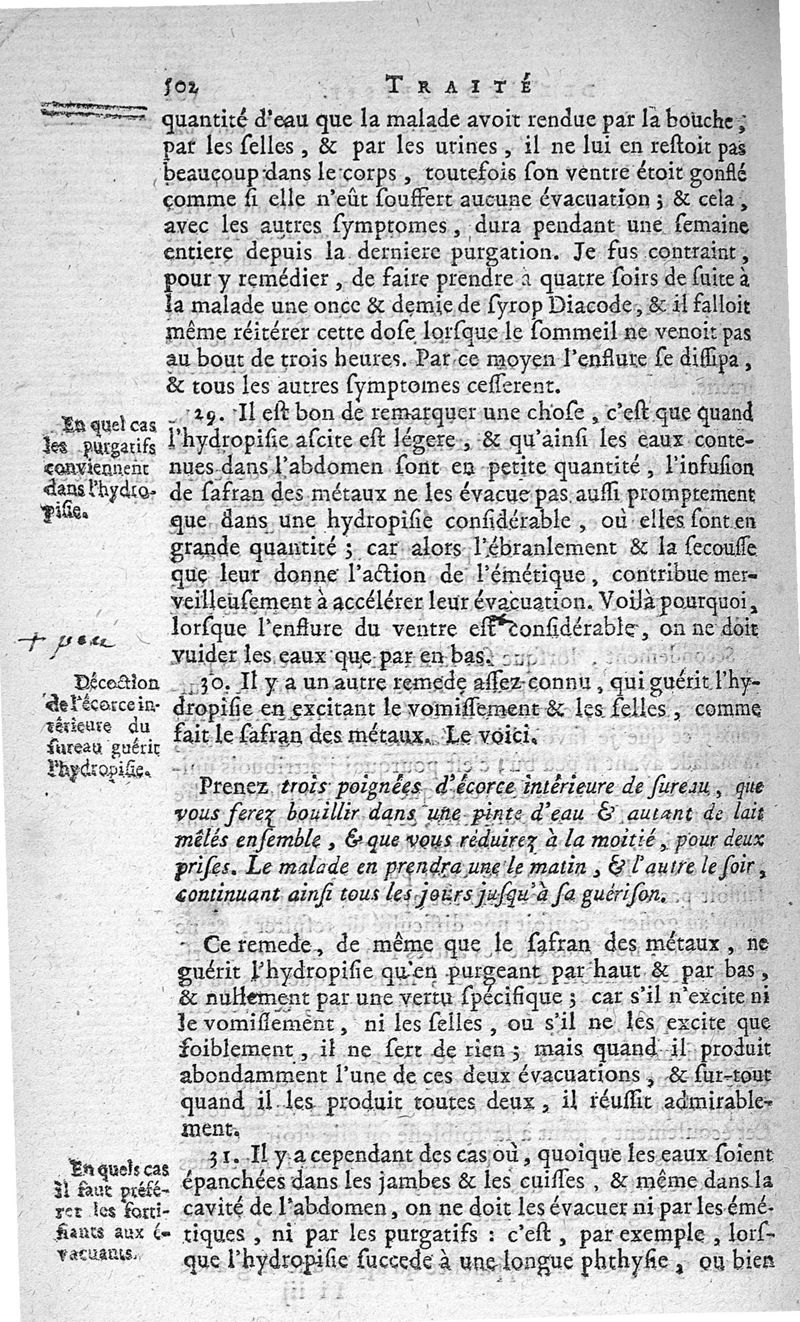 502 TRAITÉ
quantité d'eau que la malade avoit rendue par la bouche,
par les ſelles, & par les urines, il ne lui en reſtoit pas
beaucoup dans le corps, toutefois ſon ventre étoit gonflé
comme ſi elle n'eût ſouffert aucune évacuation; & cela,
avec les autres ſymptomes, dura pendant une ſemaine
entiere depuis la derniere purgation. Je fus contraint,
pour y remédier, de faire prendre à quatre ſoirs de ſuite à
la malade une once & demie de ſyrop Diacode, & il falloit
même réitérer cette doſe lorſque le ſommeil ne venoit pas
au bout de trois heures. Par ce moyen l'enflure ſe diſſipa,
& tous les autres ſymptomes ceſſerent.
En quel cas
les purgatifs
conviennent
dans l'hydro-
piſie.
29. Il eſt bon de remarquer une choſe, c'eſt que quand
l'hydropiſie aſcite eſt légere, & qu'ainſi les eaux conte-
nues dans l'abdomen ſont en petite quantité, l'infuſion
de ſafran des métaux ne les évacue pas auſſi promptement
que dans une hydropiſie conſidérable, où elles ſont en
grande quantité; car alors l'ébranlement & la ſecouſſe
que leur donne l'action de l'émétique, contribue mer-
veilleuſement à accélérer leur évacuation. Voilà pourquoi,
lorſque l'enflure du ventre eſt conſidérable, on ne doit
vuider les eaux que par en bas.
+ peu
Décoction
de l'écorce in-
térieure du
ſureau guérit
l'hydropiſie.
30. Il y a un autre remede aſſez connu, qui guérit l'hy-
dropiſie en excitant le vomiſſement & les ſelles, comme
fait le ſafran des métaux. Le voici.
Prenez trois poignées d'écorce intérieure de ſureau, que
vous ferez bouillir dans une pinte d'eau & autant de lait
mêlés enſemble, & que vous réduirez à la moitié, pour deux
priſes. Le malade en prendra une le matin, & l'autre le ſoir,
continuant ainſi tous les jours juſqu'à ſa guériſon.
Ce remede, de même que le ſafran des métaux, ne
guérit l'hydropiſie qu'en purgeant par haut & par bas,
& nullement par une vertu ſpécifique; car s'il n'excite ni
le vomiſſement, ni les ſelles, ou s'il ne les excite que
foiblement, il ne ſert de rien; mais quand il produit
abondamment l'une de ces deux évacuations, & ſur-tout
quand il les produit toutes deux, il réuſſit admirable-
ment.
En quels cas
il faut préfé-
rer les forti-
fiants aux é-
vacuants.
31. Il y a cependant des cas où, quoique les eaux ſoient
épanchées dans les jambes & les cuiſſes, & même dans la
cavité de l'abdomen, on ne doit les évacuer ni par les émé-
tiques, ni par les purgatifs: c'eſt, par exemple, lorſ-
que l'hydropiſie ſuccede à une longue phthyſie, ou bien